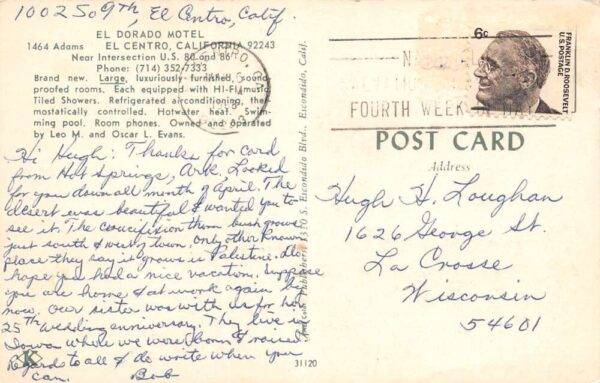 1002 So 9th, El Centro, Calif.
EL DORADO MOTEL
1464 Adams EL CENTRO, CALIFORNIA 92243
Near Intersection U.S. 80 and 86
Phone: (714) 352-7333
Brand new. Large, luxuriously furnished, sound
proofed rooms. Each equipped with HI-FI music,
Tiled Showers. Refrigerated airconditioning, ther-
mostatically controlled. Hotwater heat. Swim-
ming pool. Room phones. Owned and operated
by Leo M. and Oscar L. Evans.
Hi Hugh: Thanks for card
from Hot Springs, Ark. Looked
for you down all month of April. The
desert was beautiful & wanted you to
see it. The crucifixion thorn bush grows
just south & west of town. Only other known
place they say it grows is Palestine. Do
hope you had a nice vacation. Suppose
you are home & at work again by
now. Our sister was with us for her
25th wedding anniversary. They live in
Iowa where we were born & raised
Regards to all & do write when you
can. Bob
K
Escondido Blvd., Escondido, Calif.
31120
6c
FRANKLIN D. ROOSEVELT
U.S. POSTAGE
FOURTH WEEK
POST CARD
Address
Hugh H. Loughan
1626 George St.
La Crosse
Wisconsin
54601